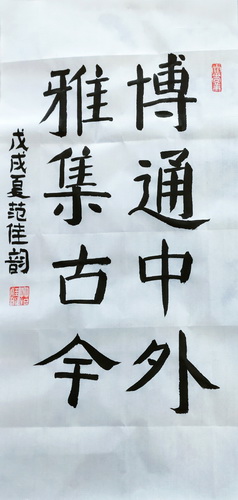 博通中外
雅集古今
戊戌夏范佳韵